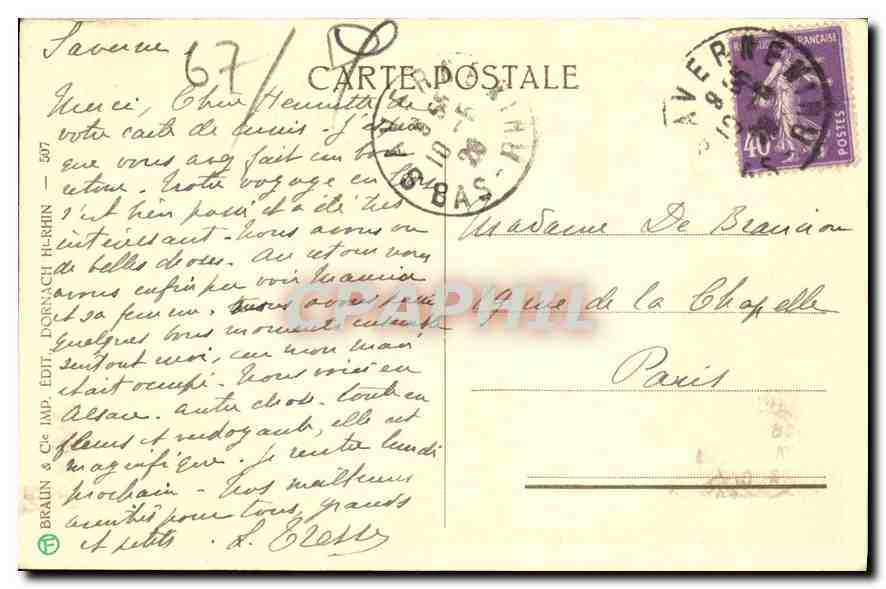 Saverne
67/
CARTE POSTALE
Merci, Chère Henriette de
votre carte de
que vous avez fait un bon
retour. Notre voyage en
s'est bien passé et a été très
intéressant. Nous avons vu
de belles choses. Au retour nous
avons enfin pu voir Maurice
et sa femme. nous avons passé
quelques bons moments ensemble
surtout moi, car mon mari
était occupé. Nous voici en
Alsace. Autre chose. toute en
fleurs et verdoyante, elle est
magnifique. Je rentre lundi
prochain. Nos meilleures
amitiés pour tous, grands
et petits. L. Tresse
BRAUN & Cie IMP. ÉDIT. DORNACH Ht-RHIN — 507
F
SAVERNE
10-5
28
BAS-RHIN
SAVERNE
RHIN
FRANÇAISE
40
POSTES
Madame De Brancion
19 rue de la Chapelle
Paris
CPAPHIL